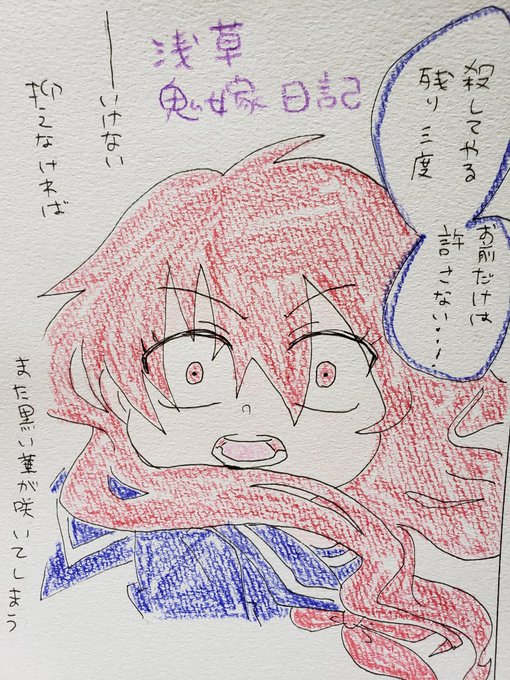 浅草
鬼嫁 日記
殺してやる
残り 三度
お前だけは
許さない・・・!
――いけない
抑えなければ
また黒い華が咲いてしまう